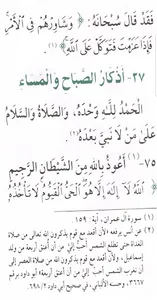 فَقَدْ قَالَ سُبْحَانَهُ: ﴿ وَشَاوِرْهُمْ فِي الْأَمْرِ
فَإِذَا عَزَمْتَ فَتَوَكَّلْ عَلَى اللَّهِ ﴾(١)
٢٧- أَذْكَارُ الصَّبَاحِ وَالْمَسَاءِ
الْحَمْدُ لِلَّهِ وَحْدَهُ، وَالصَّلَاةُ وَالسَّلَامُ
عَلَى مَنْ لَا نَبِيَّ بَعْدَهُ(٢)
٧٥- (١) أَعُوذُ بِاللَّهِ مِنَ الشَّيْطَانِ الرَّجِيمِ
﴿ اللَّهُ لَا إِلَهَ إِلَّا هُوَ الْحَيُّ الْقَيُّومُ لَا تَأْخُذُهُ
(١) سورة آل عمران، آية: ١٥٩.
(٢) عن أنس يرفعه «لأن أقعد مع قوم يذكرون الله تعالى من صلاة
الغداة حتى تطلع الشمس أحب إليّ من أن أعتق أربعة من ولد
إسماعيل، ولأن أقعد مع قوم يذكرون الله من صلاة العصر إلى
أن تغرب الشمس أحب إليّ من أن أعتق أربعة» أبو داود برقم
٣٦٦٧، وحسنه الألباني، في صحيح أبي داود ٢/ ٦٩٨.